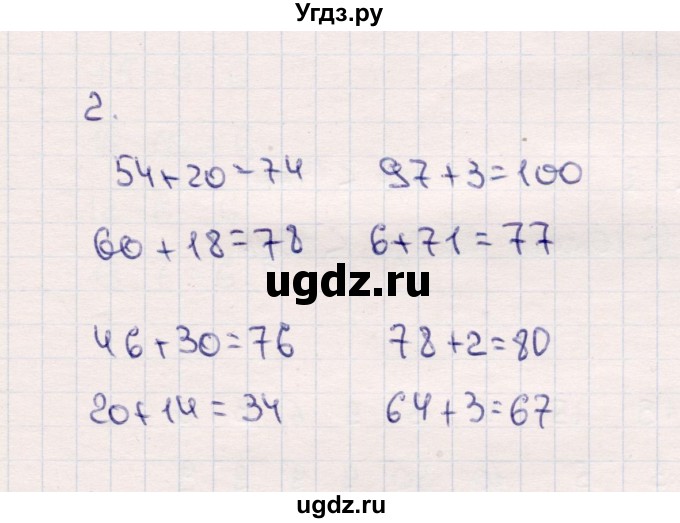 Угдз.ру
2.
54+20=74 97+3=100
60+18=78 6+71=77
ugdz.ru
46+30=76 78+2=80
20+14=34 64+3=67
ugdz.ru